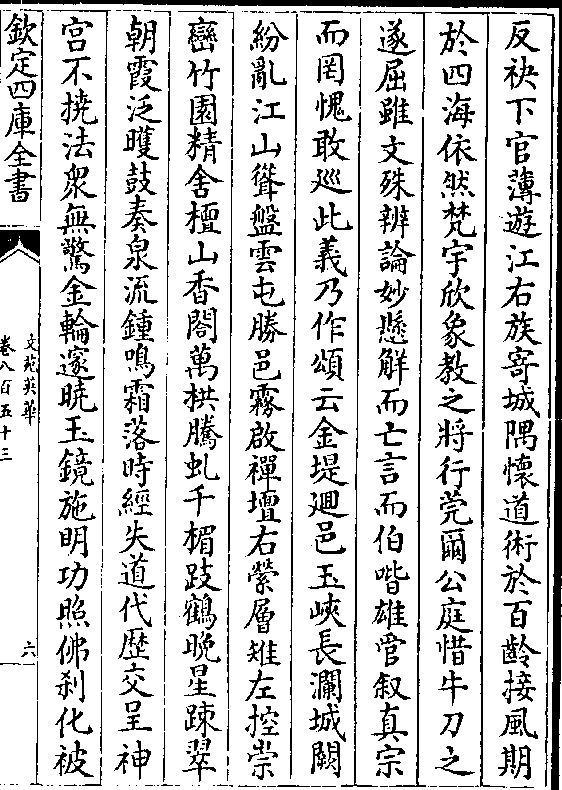 反袂下官薄遊江右旅寄城隅懷道術於百齡接風期
於四海依然梵宇欣象教之將行莞爾公庭惜牛刀之
遂屈雖文殊辨論妙懸解而亡言而伯喈雄管叙真宗
而罔愧敢廵此義乃作頌云金堤迴邑玉峽長瀾城闕
紛亂江山聳盤雲屯勝邑霧啟禪壇右縈層雉左控崇
巒竹園精舍檀山香閣萬栱騰虬千楣跂鶴晚星踈翠
朝霞泛雘鼓奏泉流鍾鳴霜落時經失道代歴交呈神
宫不撓法衆無驚金輪邃曉玉鏡施明功照佛刹化被
欽定四庫全書
文苑英華
卷八百五十三
六